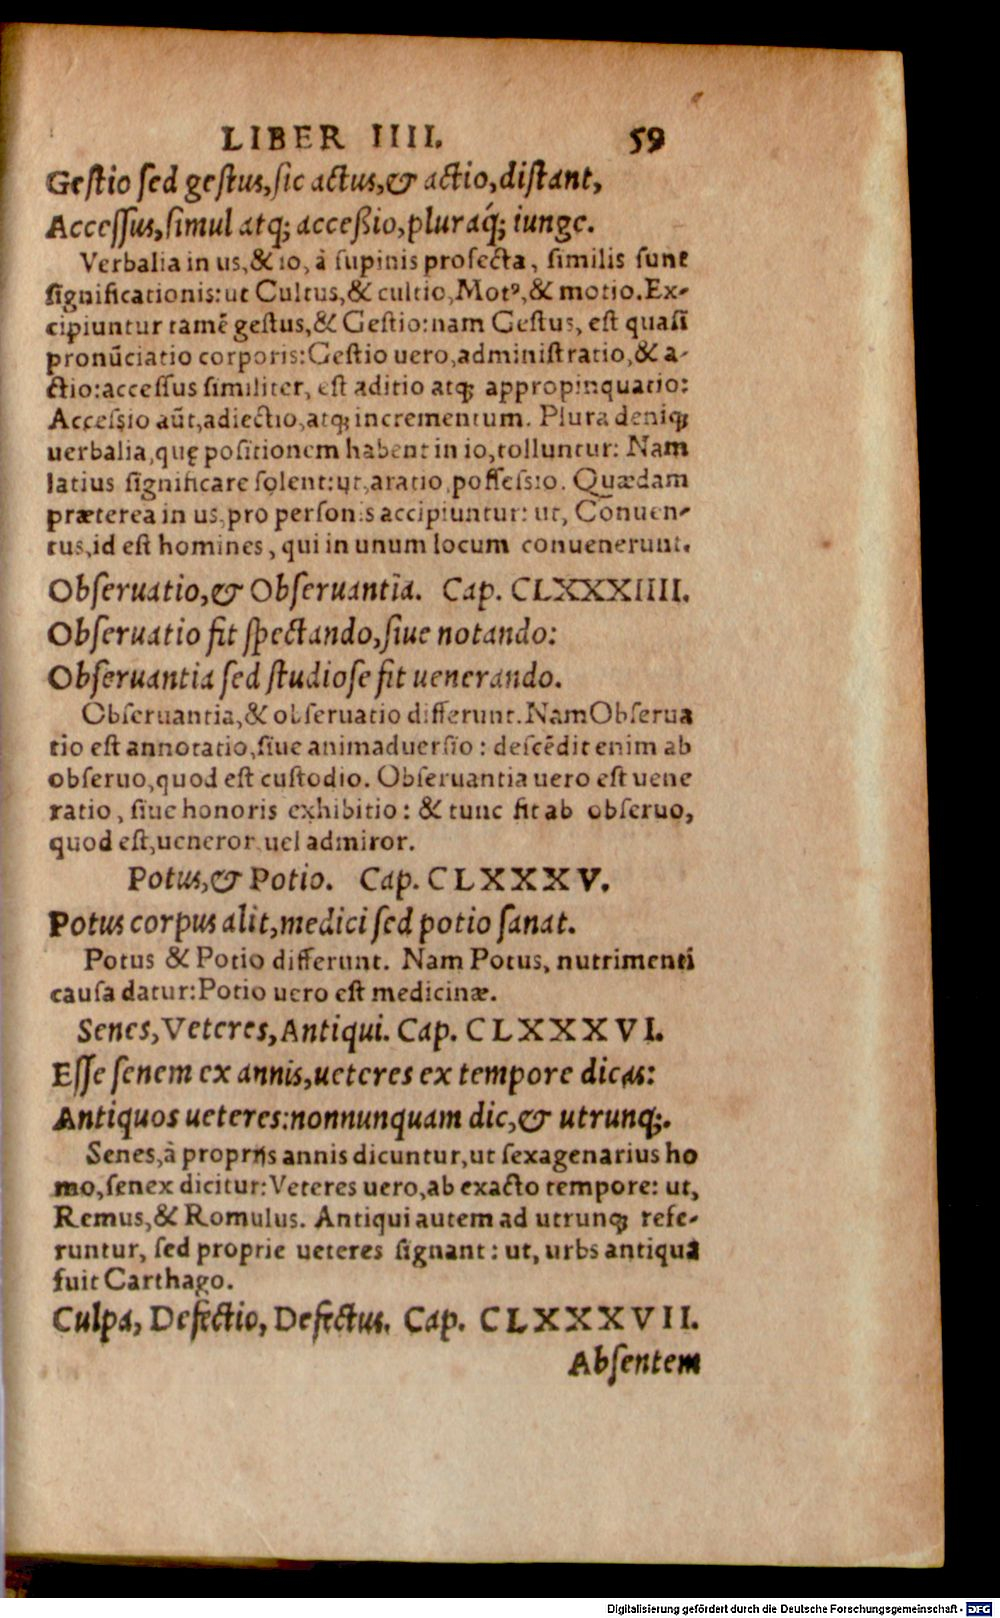 LIBER IIII. 59
Geſtio ſed geſtus, ſic actus, & actio, diſtant,
Acceſſus, ſimul atq; acceßio, pluraq́; iunge.
Verbalia in us, & io, à ſupinis profecta, ſimilis ſunt
ſignificationis: ut Cultus, & cultio, Motꝰ, & motio. Ex-
cipiuntur tamẽ geſtus, & Geſtio: nam Geſtus, eſt quaſi
pronũciatio corporis: Geſtio uero, adminiſtratio, & a-
ctio: acceſſus ſimiliter, eſt aditio atq; appropinquatio:
Acceſsio aũt, adiectio, atq; incrementum. Plura deniq;
uerbalia, quę poſitionem habent in io, tolluntur: Nam
latius ſignificare ſolent: ut, aratio, poſſeſsio. Quædam
præterea in us, pro perſonis accipiuntur: ut, Conuen-
tus, id eſt homines, qui in unum locum conuenerunt.
Obſeruatio, & Obſeruantia. Cap. CLXXXIIII.
Obſeruatio fit ſpectando, ſiue notando:
Obſeruantia ſed ſtudioſe fit uenerando.
Obſeruantia, & obſeruatio differunt. Nam Obſerua
tio eſt annotatio, ſiue animaduerſio: deſcẽdit enim ab
obſeruo, quod eſt cuſtodio. Obſeruantia uero eſt uene
ratio, ſiue honoris exhibitio: & tunc fit ab obſeruo,
quod eſt, ueneror uel admiror.
Potus, & Potio. Cap. CLXXXV.
Potus corpus alit, medici ſed potio ſanat.
Potus & Potio differunt. Nam Potus, nutrimenti
cauſa datur: Potio uero eſt medicinæ.
Senes, Veteres, Antiqui. Cap. CLXXXVI.
Eſſe ſenem ex annis, ueteres ex tempore dicas:
Antiquos ueteres: nonnunquam dic, & utrunq;.
Senes, à proprijs annis dicuntur, ut ſexagenarius ho
mo, ſenex dicitur: Veteres uero, ab exacto tempore: ut,
Remus, & Romulus. Antiqui autem ad utrunq; refe-
runtur, ſed proprie ueteres ſignant: ut, urbs antiqua
fuit Carthago.
Culpa, Defectio, Defectus. Cap. CLXXXVII.
Abſentem
Digitalisierung gefördert durch die Deutsche Forschungsgemeinschaft - DFG